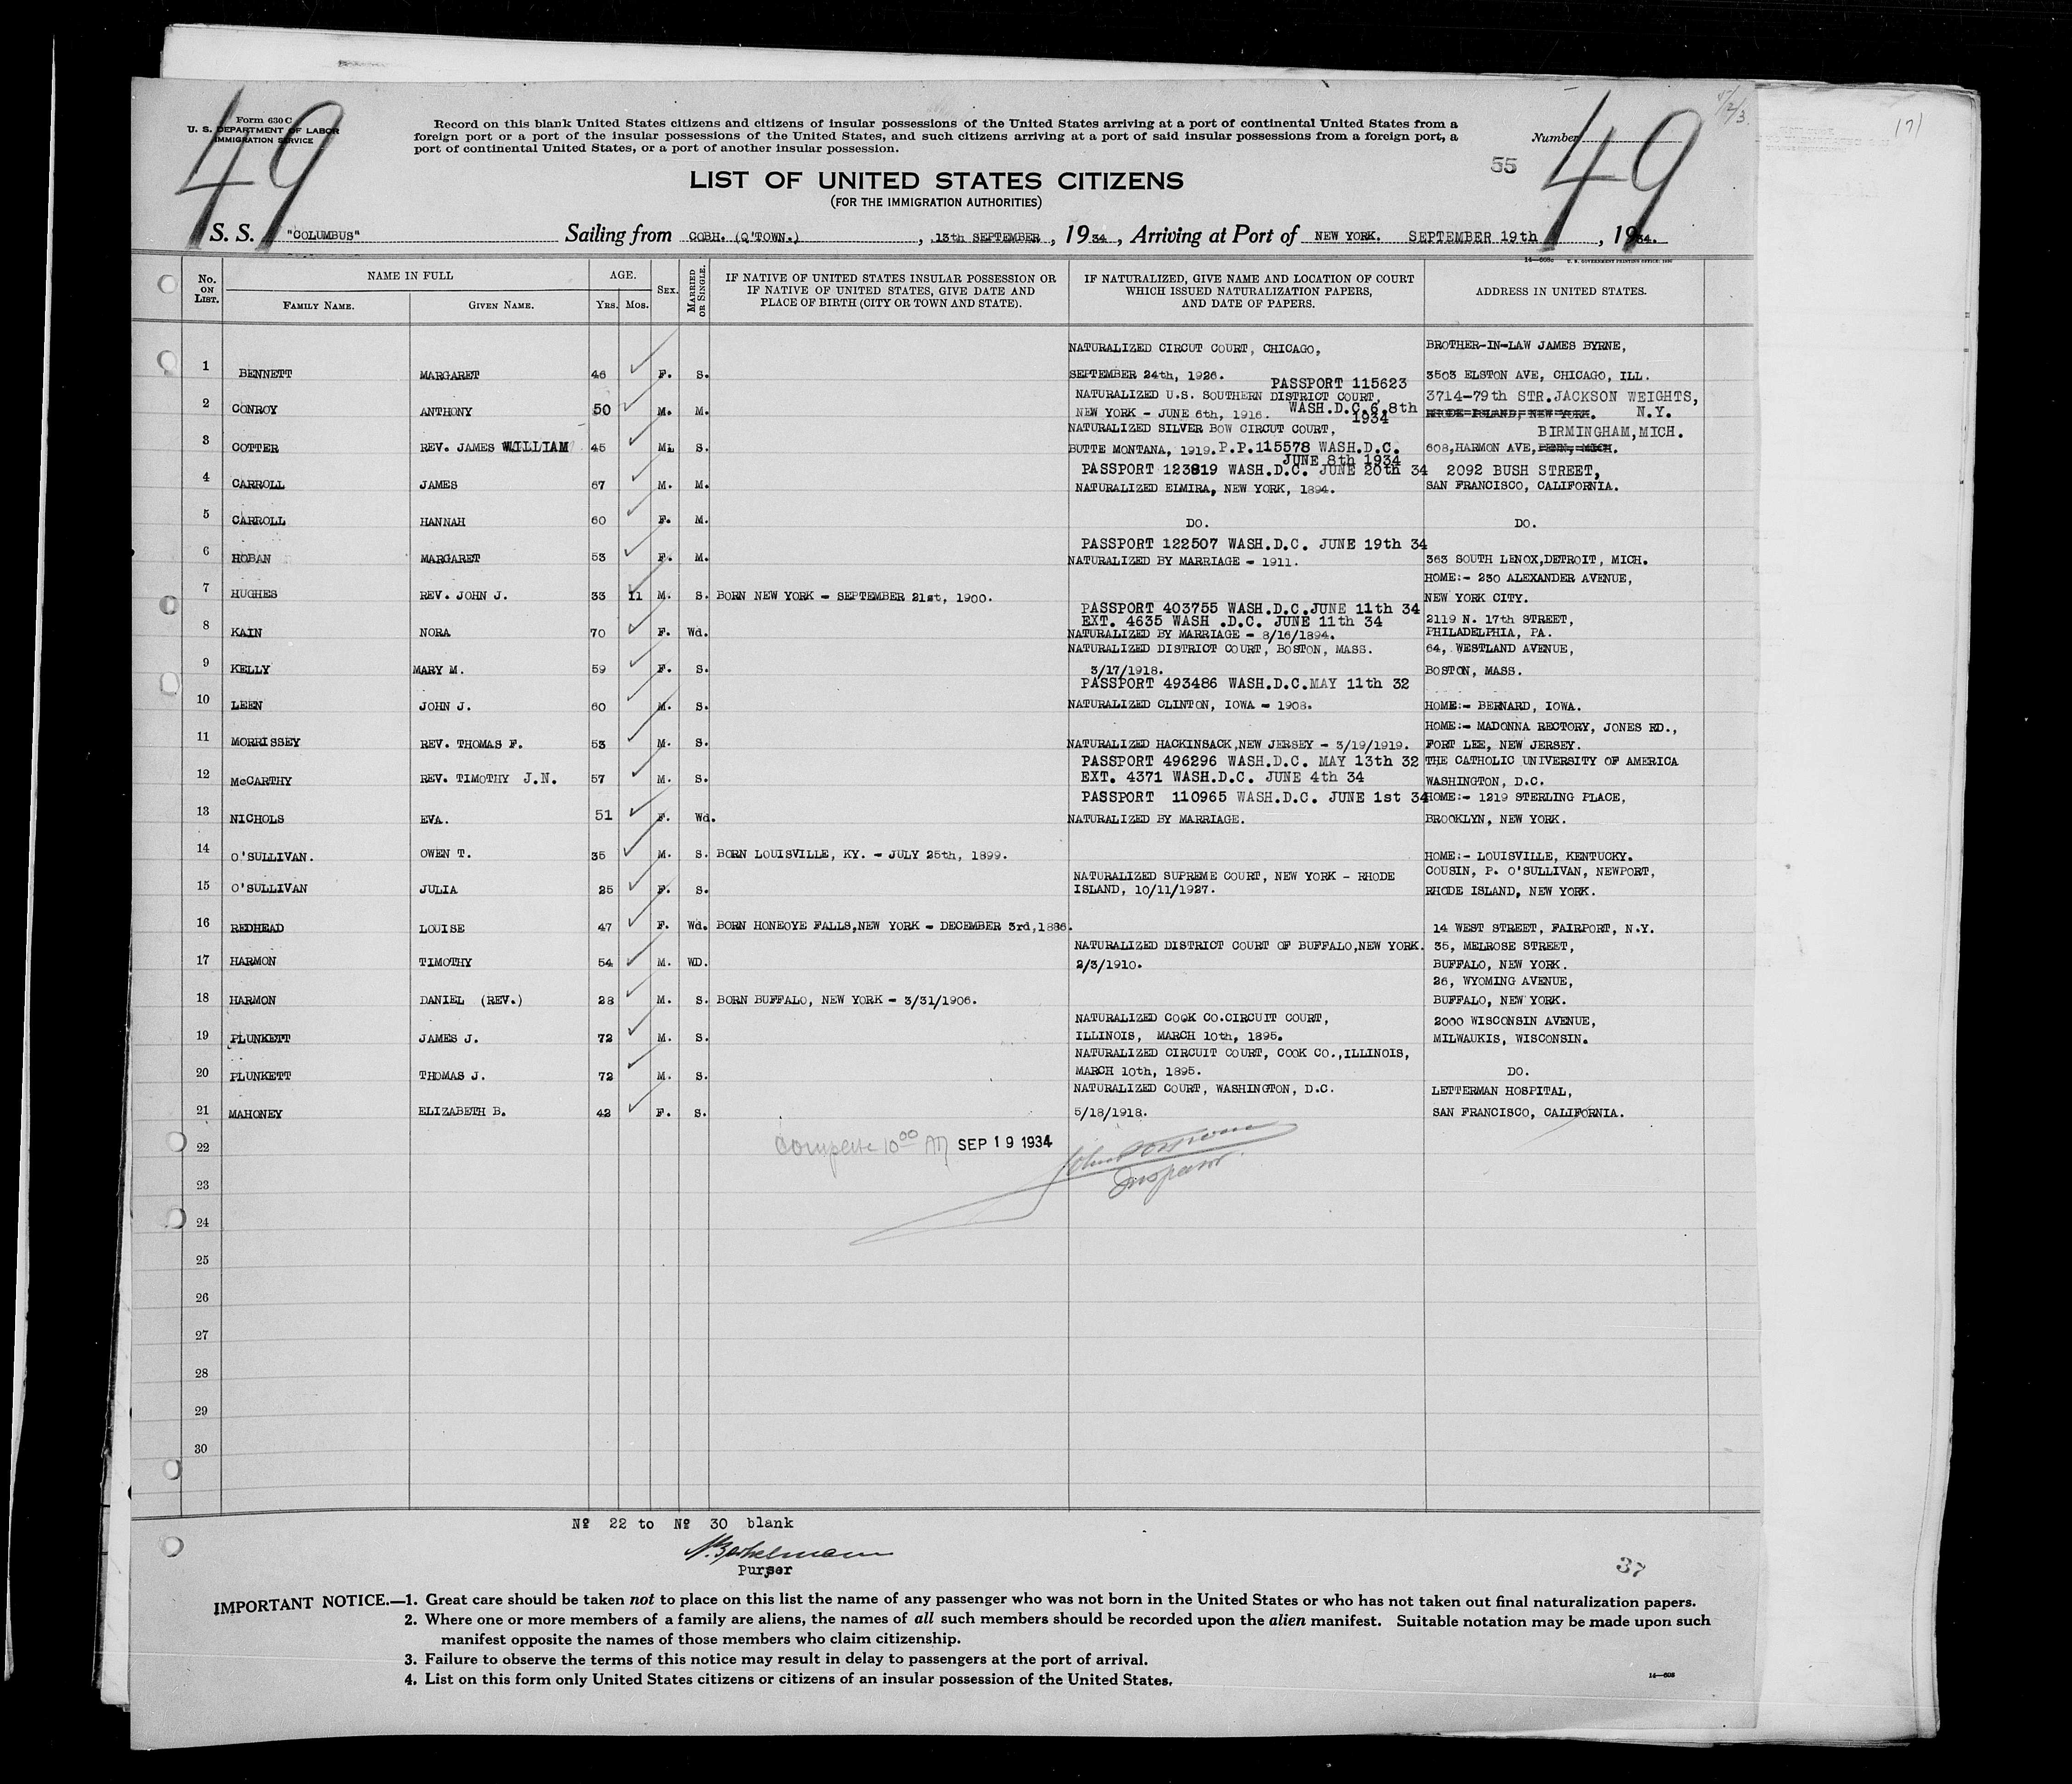 49
49
Form 630 C
U. S. DEPARTMENT OF LABOR
IMMIGRATION SERVICE
Record on this blank United States citizens and citizens of insular possessions of the United States arriving at a port of continental United States from a
foreign port or a port of the insular possessions of the United States, and such citizens arriving at a port of said insular possessions from a foreign port, a
port of continental United States, or a port of another insular possession.
Number
55
LIST OF UNITED STATES CITIZENS
(FOR THE IMMIGRATION AUTHORITIES)
S. S. "COLUMBUS" Sailing from COBH. (Q'TOWN.), 13th SEPTEMBER, 1934, Arriving at Port of NEW YORK. SEPTEMBER 19th, 1934.
14—608c U. S. GOVERNMENT PRINTING OFFICE: 1930
No. ON LIST.
NAME IN FULL
FAMILY NAME. GIVEN NAME.
AGE.
YRS. MOS.
SEX.
MARRIED OR SINGLE.
IF NATIVE OF UNITED STATES INSULAR POSSESSION OR
IF NATIVE OF UNITED STATES, GIVE DATE AND
PLACE OF BIRTH (CITY OR TOWN AND STATE).
IF NATURALIZED, GIVE NAME AND LOCATION OF COURT
WHICH ISSUED NATURALIZATION PAPERS,
AND DATE OF PAPERS.
ADDRESS IN UNITED STATES.
NATURALIZED CIRCUT COURT, CHICAGO, BROTHER-IN-LAW JAMES BYRNE,
1 BENNETT MARGARET 46 F. S. SEPTEMBER 24th, 1926. 3503 ELSTON AVE, CHICAGO, ILL.
PASSPORT 115623
NATURALIZED U.S. SOUTHERN DISTRICT COURT, 3714-79th STR.JACKSON WEIGHTS,
2 CONROY ANTHONY 50 M. M. NEW YORK - JUNE 6th, 1916. WASH.D.C.6.8th 1934 RHODE ISLAND, NEW YORK. N.Y.
NATURALIZED SILVER BOW CIRCUT COURT, BIRMINGHAM,MICH.
3 COTTER REV. JAMES WILLIAM 45 M. S. BUTTE MONTANA, 1919. P.P.115578 WASH.D.C. 608,HARMON AVE,
JUNE 8th 1934
PASSPORT 123819 WASH.D.C. JUNE 20th 34 2092 BUSH STREET,
4 CARROLL JAMES 67 M. M. NATURALIZED ELMIRA, NEW YORK, 1894. SAN FRANCISCO, CALIFORNIA.
5 CARROLL HANNAH 60 F. M. DO. DO.
PASSPORT 122507 WASH.D.C. JUNE 19th 34
6 HOBAN MARGARET 53 F. M. NATURALIZED BY MARRIAGE - 1911. 363 SOUTH LENOX,DETROIT, MICH.
HOME:- 230 ALEXANDER AVENUE,
7 HUGHES REV. JOHN J. 33 11 M. S. BORN NEW YORK - SEPTEMBER 21st, 1900. NEW YORK CITY.
PASSPORT 403755 WASH.D.C.JUNE 11th 34
EXT. 4635 WASH .D.C. JUNE 11th 34 2119 N. 17th STREET,
8 KAIN NORA 70 F. Wd. NATURALIZED BY MARRIAGE - 8/16/1894. PHILADELPHIA, PA.
NATURALIZED DISTRICT COURT, BOSTON, MASS. 64, WESTLAND AVENUE,
9 KELLY MARY M. 59 F. S. 3/17/1918. BOSTON, MASS.
PASSPORT 493486 WASH.D.C.MAY 11th 32
10 LEEN JOHN J. 60 M. S. NATURALIZED CLINTON, IOWA - 1908. HOME:- BERNARD, IOWA.
HOME:- MADONNA RECTORY, JONES RD.,
11 MORRISSEY REV. THOMAS F. 53 M. S. NATURALIZED HACKINSACK,NEW JERSEY - 3/19/1919. FORT LEE, NEW JERSEY.
PASSPORT 496296 WASH.D.C. MAY 13th 32 THE CATHOLIC UNIVERSITY OF AMERICA
12 McCARTHY REV. TIMOTHY J.N. 57 M. S. EXT. 4371 WASH.D.C. JUNE 4th 34 WASHINGTON, D.C.
PASSPORT 110965 WASH.D.C. JUNE 1st 34 HOME:- 1219 STERLING PLACE,
13 NICHOLS EVA. 51 F. Wd. NATURALIZED BY MARRIAGE. BROOKLYN, NEW YORK.
14 O'SULLIVAN. OWEN T. 35 M. S. BORN LOUISVILLE, KY. - JULY 25th, 1899. HOME:- LOUISVILLE, KENTUCKY.
NATURALIZED SUPREME COURT, NEW YORK - RHODE COUSIN, P. O'SULLIVAN, NEWPORT,
15 O'SULLIVAN JULIA 25 F. S. ISLAND, 10/11/1927. RHODE ISLAND, NEW YORK.
16 REDHEAD LOUISE 47 F. Wd. BORN HONEOYE FALLS,NEW YORK - DECEMBER 3rd,1886. 14 WEST STREET, FAIRPORT, N.Y.
NATURALIZED DISTRICT COURT OF BUFFALO,NEW YORK. 35, MELROSE STREET,
17 HARMON TIMOTHY 54 M. WD. 2/3/1910. BUFFALO, NEW YORK.
26, WYOMING AVENUE,
18 HARMON DANIEL (REV.) 28 M. S. BORN BUFFALO, NEW YORK - 3/31/1906. BUFFALO, NEW YORK.
NATURALIZED COOK CO.CIRCUIT COURT, 2000 WISCONSIN AVENUE,
19 PLUNKETT JAMES J. 72 M. S. ILLINOIS, MARCH 10th, 1895. MILWAUKIS, WISCONSIN.
NATURALIZED CIRCUIT COURT, COOK CO.,ILLINOIS,
20 PLUNKETT THOMAS J. 72 M. S. MARCH 10th, 1895. DO.
NATURALIZED COURT, WASHINGTON, D.C. LETTERMAN HOSPITAL,
21 MAHONEY ELIZABETH B. 42 F. S. 5/18/1918. SAN FRANCISCO, CALIFORNIA.
22 Complete 10 00 AM SEP 19 1934
Inspector
23
24
25
26
27
28
29
30
Nº 22 to Nº 30 blank
Purser
37
IMPORTANT NOTICE.—1. Great care should be taken not to place on this list the name of any passenger who was not born in the United States or who has not taken out final naturalization papers.
2. Where one or more members of a family are aliens, the names of all such members should be recorded upon the alien manifest. Suitable notation may be made upon such
manifest opposite the names of those members who claim citizenship.
3. Failure to observe the terms of this notice may result in delay to passengers at the port of arrival.
4. List on this form only United States citizens or citizens of an insular possession of the United States.
14—608